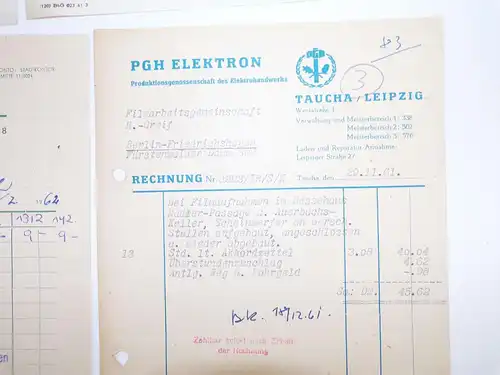 83
PGH ELEKTRON
Produktionsgenossenschaft des Elektrohandwerks
PGH
3
TAUCHA/LEIPZIG
Weststraße 1
Verwaltung und Meisterbereich 1: 338
Meisterbereich 2: 502
Meisterbereich 3: 376
Laden und Reparatur-Annahme:
Leipziger Straße 27
Filmarbeitsgemeinschaft
H.-Greif
Berlin-Friedrichshagen
RECHNUNG Nr.
Taucha, den 20.11.61.
bei Filmaufnahmen im Messehaus
Mädler-Passage u. Auerbachs-
Keller, Scheinwerfer an versch.
Stellen aufgebaut, angeschlossen
u. wieder abgebaut.
13 Std. lt. Akkordzettel 3.08 40.04
Überstundenzuschlag 4.62
Antlg. Weg u. Fahrgeld -.96
Sa: DM. 45.62
18/12.61.
Zahlbar sofort nach Erhalt
der Rechnung
1962
1312 142
9- 9-